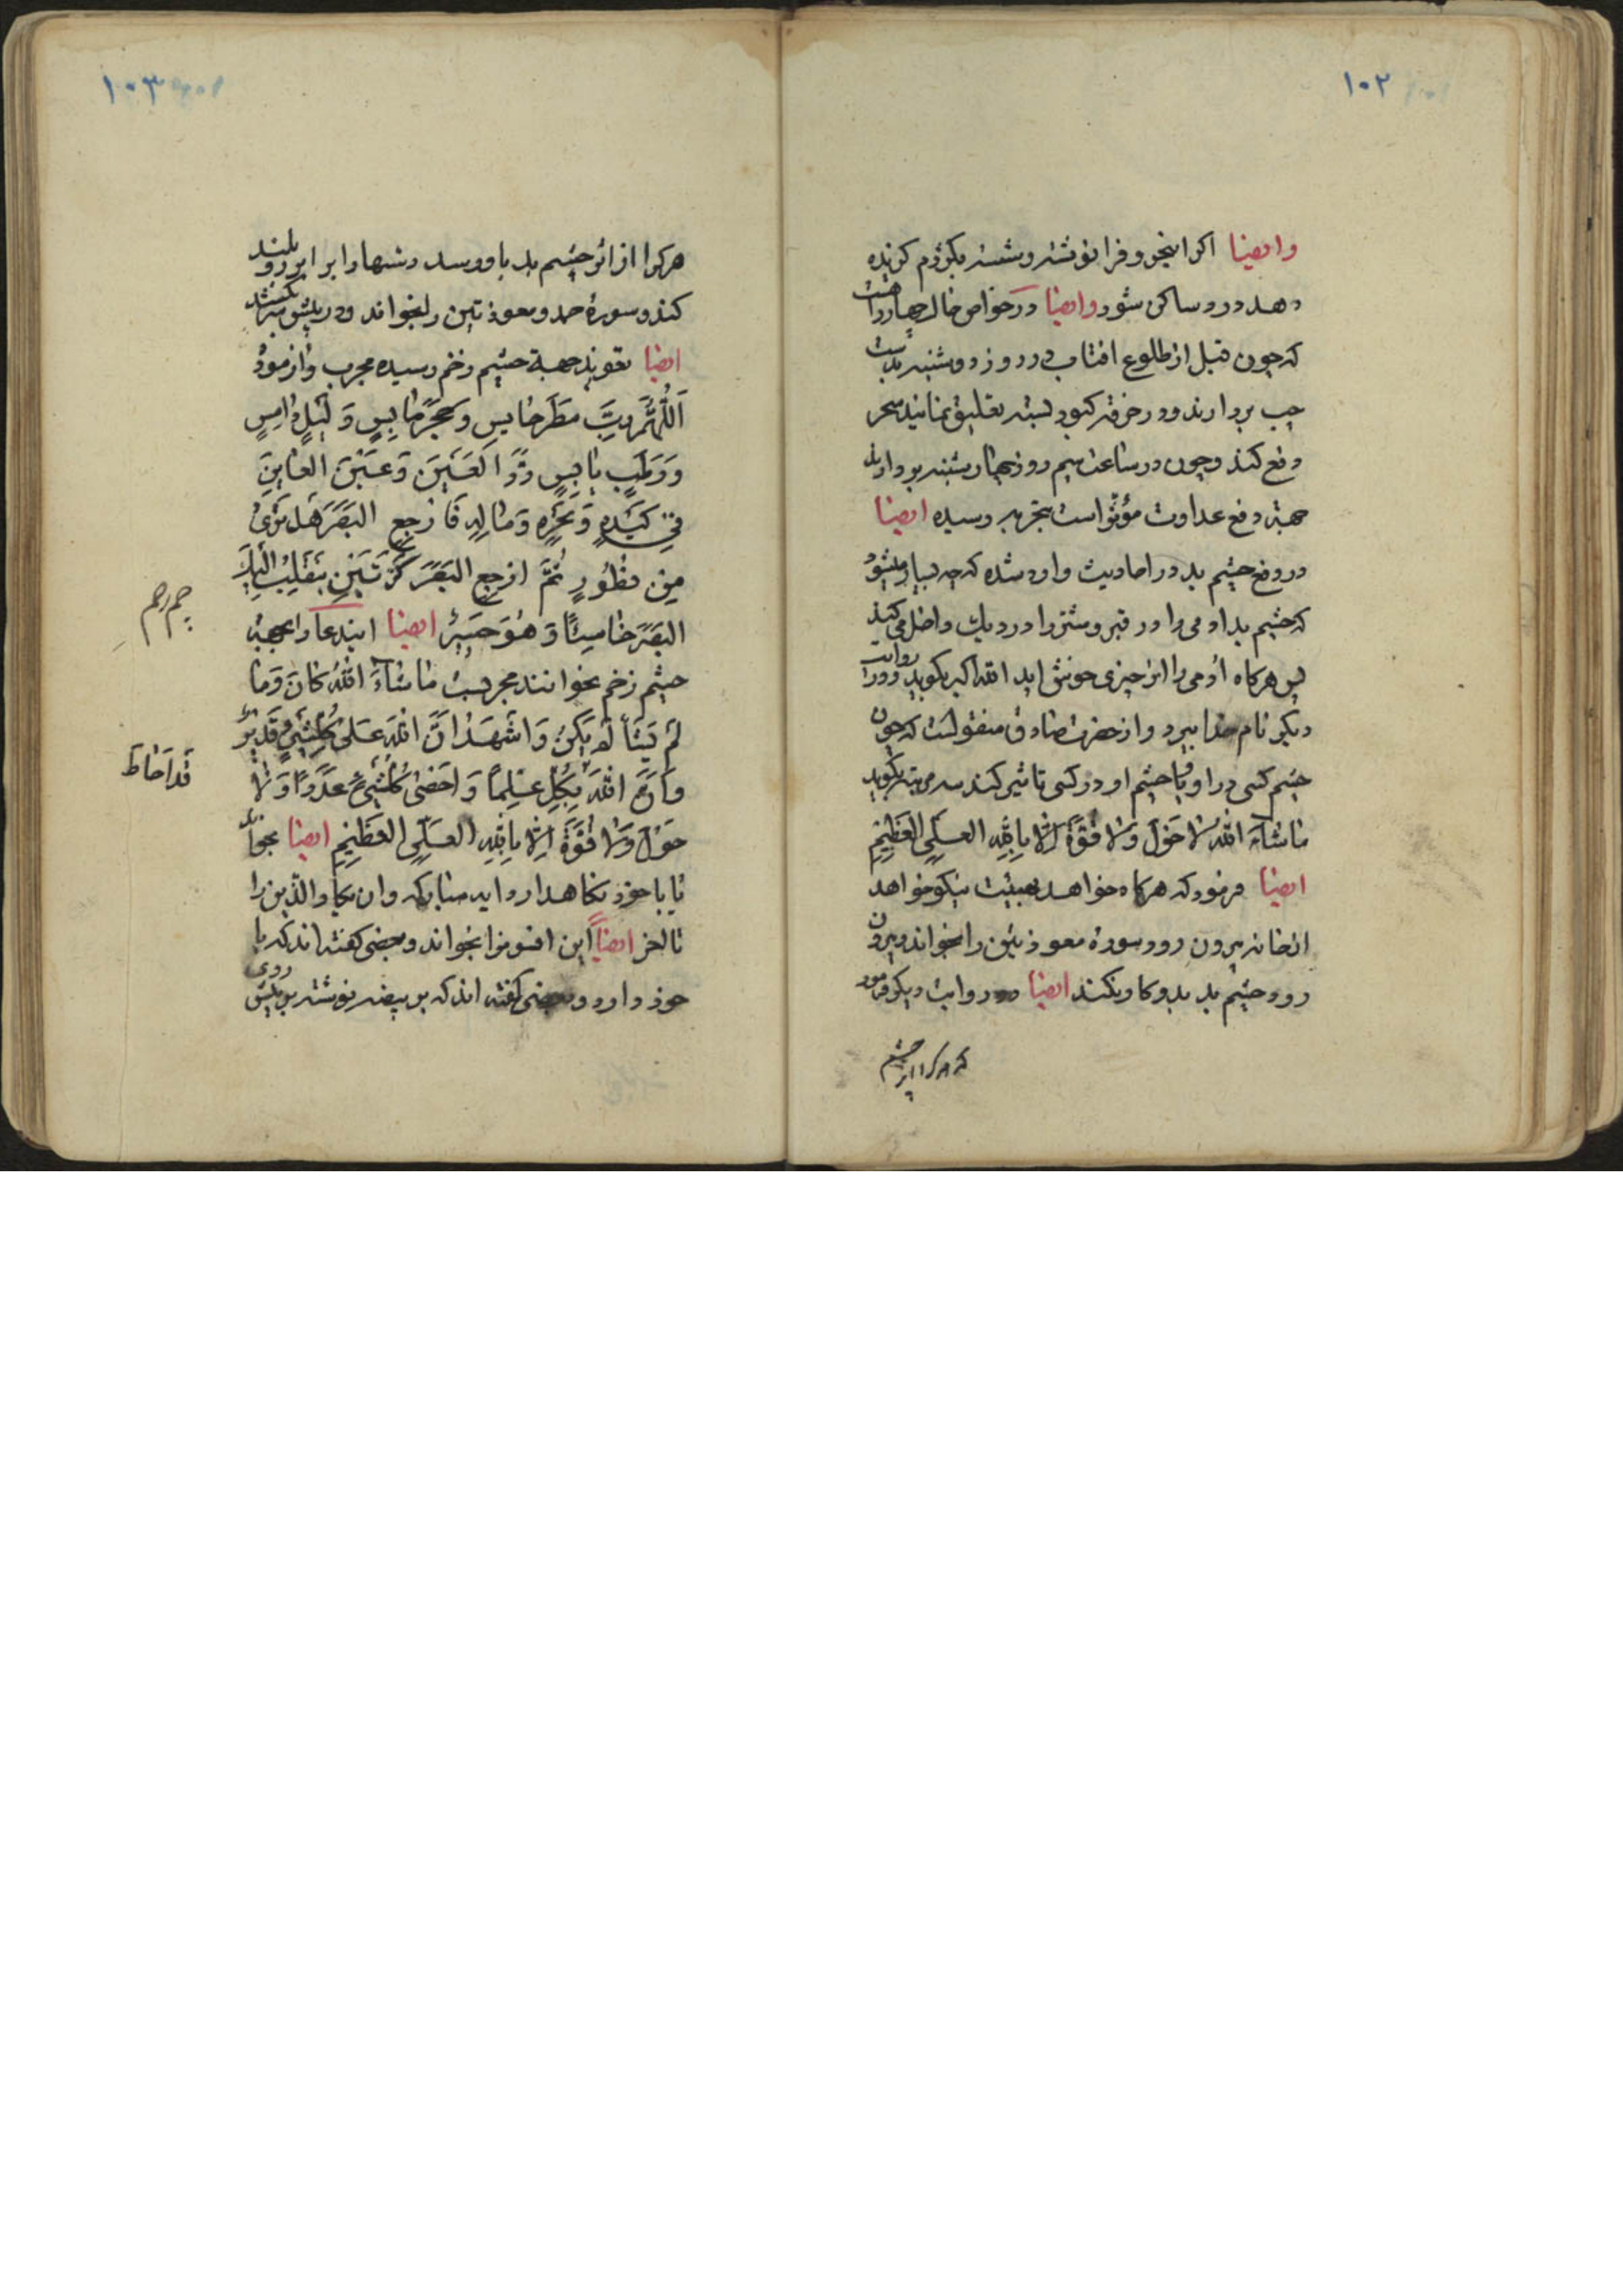 ۱۰۲
وایضا اکر اینحروفرا نوشته و شسته بکژدم کزیده
دهد درد ساکن شود وایضا در خواص خال چهار روایتست
که چون قبل از طلوع افتاب در روز دوشنبه بدست
چپ بردارند و در خرقه کبود بسته تعلیق نمایند سحر
دفع کند و چون در ساعت سیم روز چهارشنبه بردارند
جهة دفع عداوت مؤثر است بتجربه رسیده ایضا
در دفع چشم بد در احادیث وارد شده که چه بسیار میشود
که چشم بد ادمی را در قبر و شتر را در دیك داخل می کند
پس هرکاه ادمی را از چیزی خوش اید الله اکبر بکوید و در روایت
دیکر نام خدا ببرد و از حضرت صادق منقولست که چون
چشم کسی در او یا چشم او در کسی تاثیر کند سه مرتبه بکوید
ماشآء الله لا حول ولا قوة الا بالله العلی العظیم
ایضا فرمود که هرکاه خواهد بهیئت نیکو خواهد
از خانه بیرون رود سورهٔ معوذتین را بخواند و بیرون
رود چشم بد بدو کار نکند ایضا در روایت دیکر فرمود
که هرکرا از چشم
۱۰۳
هرکرا از اثر چشم بد باو رسد دستها را برابر رو بلند
کند و سورهٔ حمد و معوذتین را بخواند و در پیش سر کشد
ایضا تعویذ جهة چشم زخم رسیده مجرب و ازموده
اللهم رب مطر حابس و حجر یابس و لیل دامس
و رطب یابس رد العین و عین العاین
فی کبده و نحره و ماله فارجع البصر هل تری
من فطور ثم ارجع البصر کرتین ینقلب الیك
البصر خاسئا و هو حسیر ایضا ایندعا را بجهة
چشم زخم بخوانند مجربست ماشآء الله کان و ما
لم یشأ لم یکن و اشهد ان الله علی کل شیء قدیر
و ان الله بکل علما و احصی کل شیء عددا و لا
حول ولا قوة الا بالله العلی العظیم ایضا بخواند
یا با خود نکاهدارد ایه مبارکه وان یکاد الذین را
تا اخر ایضاً این افسونرا بخواند و بعضی کفته اند که با
خود دارد و بعضی کفته اند که بر بیضه نوشته بر پیش روی
قد احاط